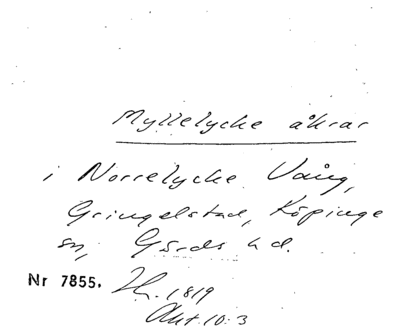 Myllelycke åkrar
i Norrelycke Vång,
Gringelstad, Köpinge
sn, Gärds hd.
Nr 7855. H. 1819
Akt. 10:3